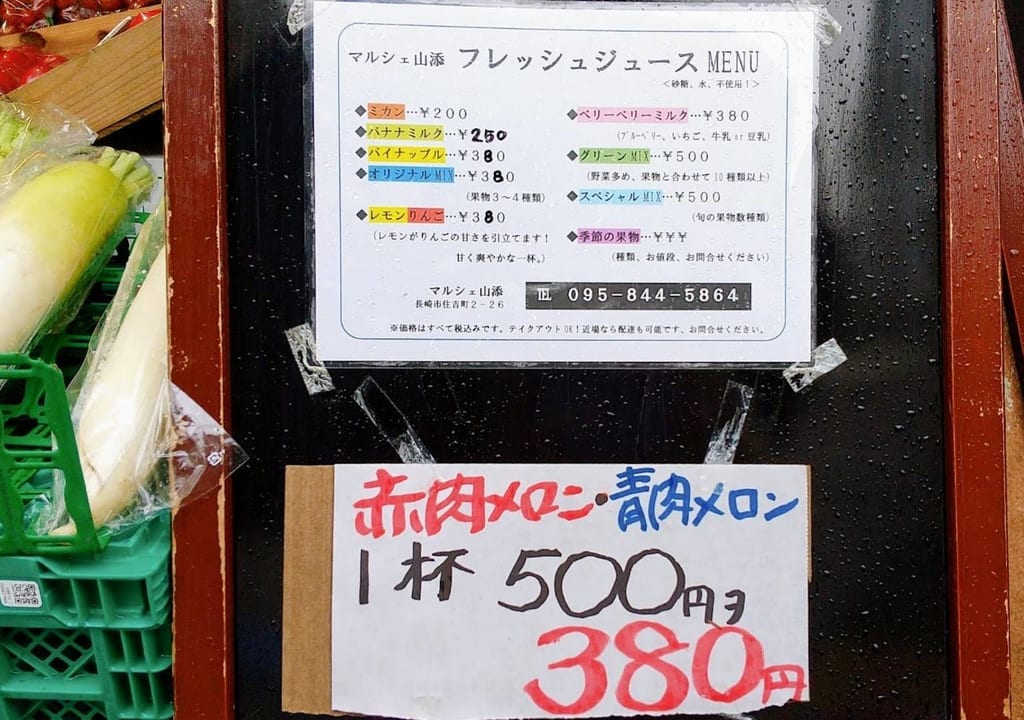 マルシェ山添 フレッシュジュース MENU
＜砂糖、水、不使用！＞
◆ミカン…￥200
◆バナナミルク…￥250
◆パイナップル…￥380
◆オリジナルMIX…￥380
（果物３～４種類）
◆レモンりんご…￥380
（レモンがりんごの甘さを引立てます！
甘く爽やかな一杯。）
◆ベリーベリーミルク…￥380
（ブルーベリー、いちご、牛乳 or 豆乳）
◆グリーンMIX…￥500
（野菜多め、果物と合わせて10種類以上）
◆スペシャルMIX…￥500
（旬の果物数種類）
◆季節の果物…￥￥￥
（種類、お値段、お問合せください）
マルシェ山添
長崎市住吉町２－２６
℡ 095-844-5864
※価格はすべて税込みです。テイクアウトOK！近場なら配達も可能です、お問合せください。
赤肉メロン・青肉メロン
1杯 500円ヲ
380円